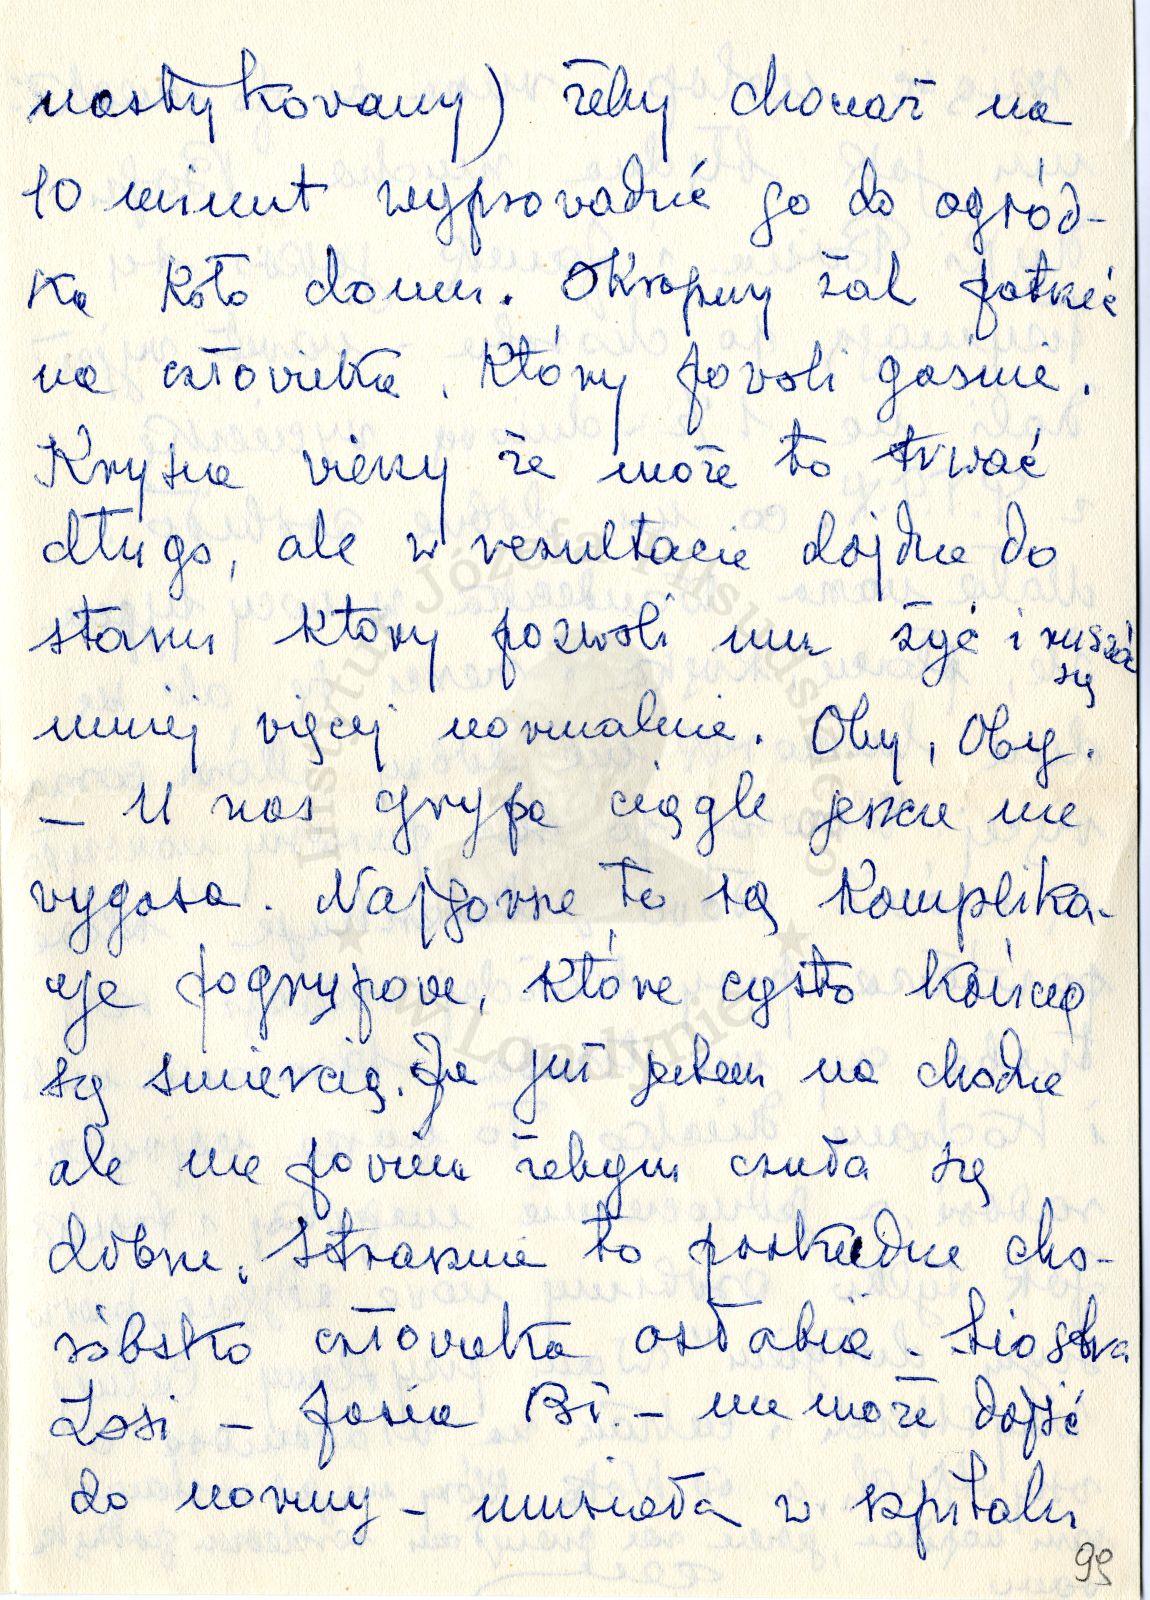 nastykowany) żeby chociaż na
10 minut wyprowadzić go do ogród-
ka koło domu. Okropny żal patrzeć
na człowieka, który powoli gaśnie.
Krysia wierzy że może to trwać
długo, ale w rezultacie dojdzie do
stanu który pozwoli mu żyć i ruszać
się
mniej więcej normalnie. Oby, Oby.
— U nas grypa ciągle jeszcze nie
wygasa. Najgorsze to są komplika-
cje pogrypowe, które często kończą
się śmiercią. Ja już jestem na chodzie
ale nie powiem żebym czuła się
dobrze. Strasznie to paskudne cho-
róbsko człowieka osłabia. Siostra
Zosi — Jasia Bł. — nie może dojść
do normy — musiała w szpitalu
99
Instytut Józefa Piłsudskiego
★ w Londynie ★